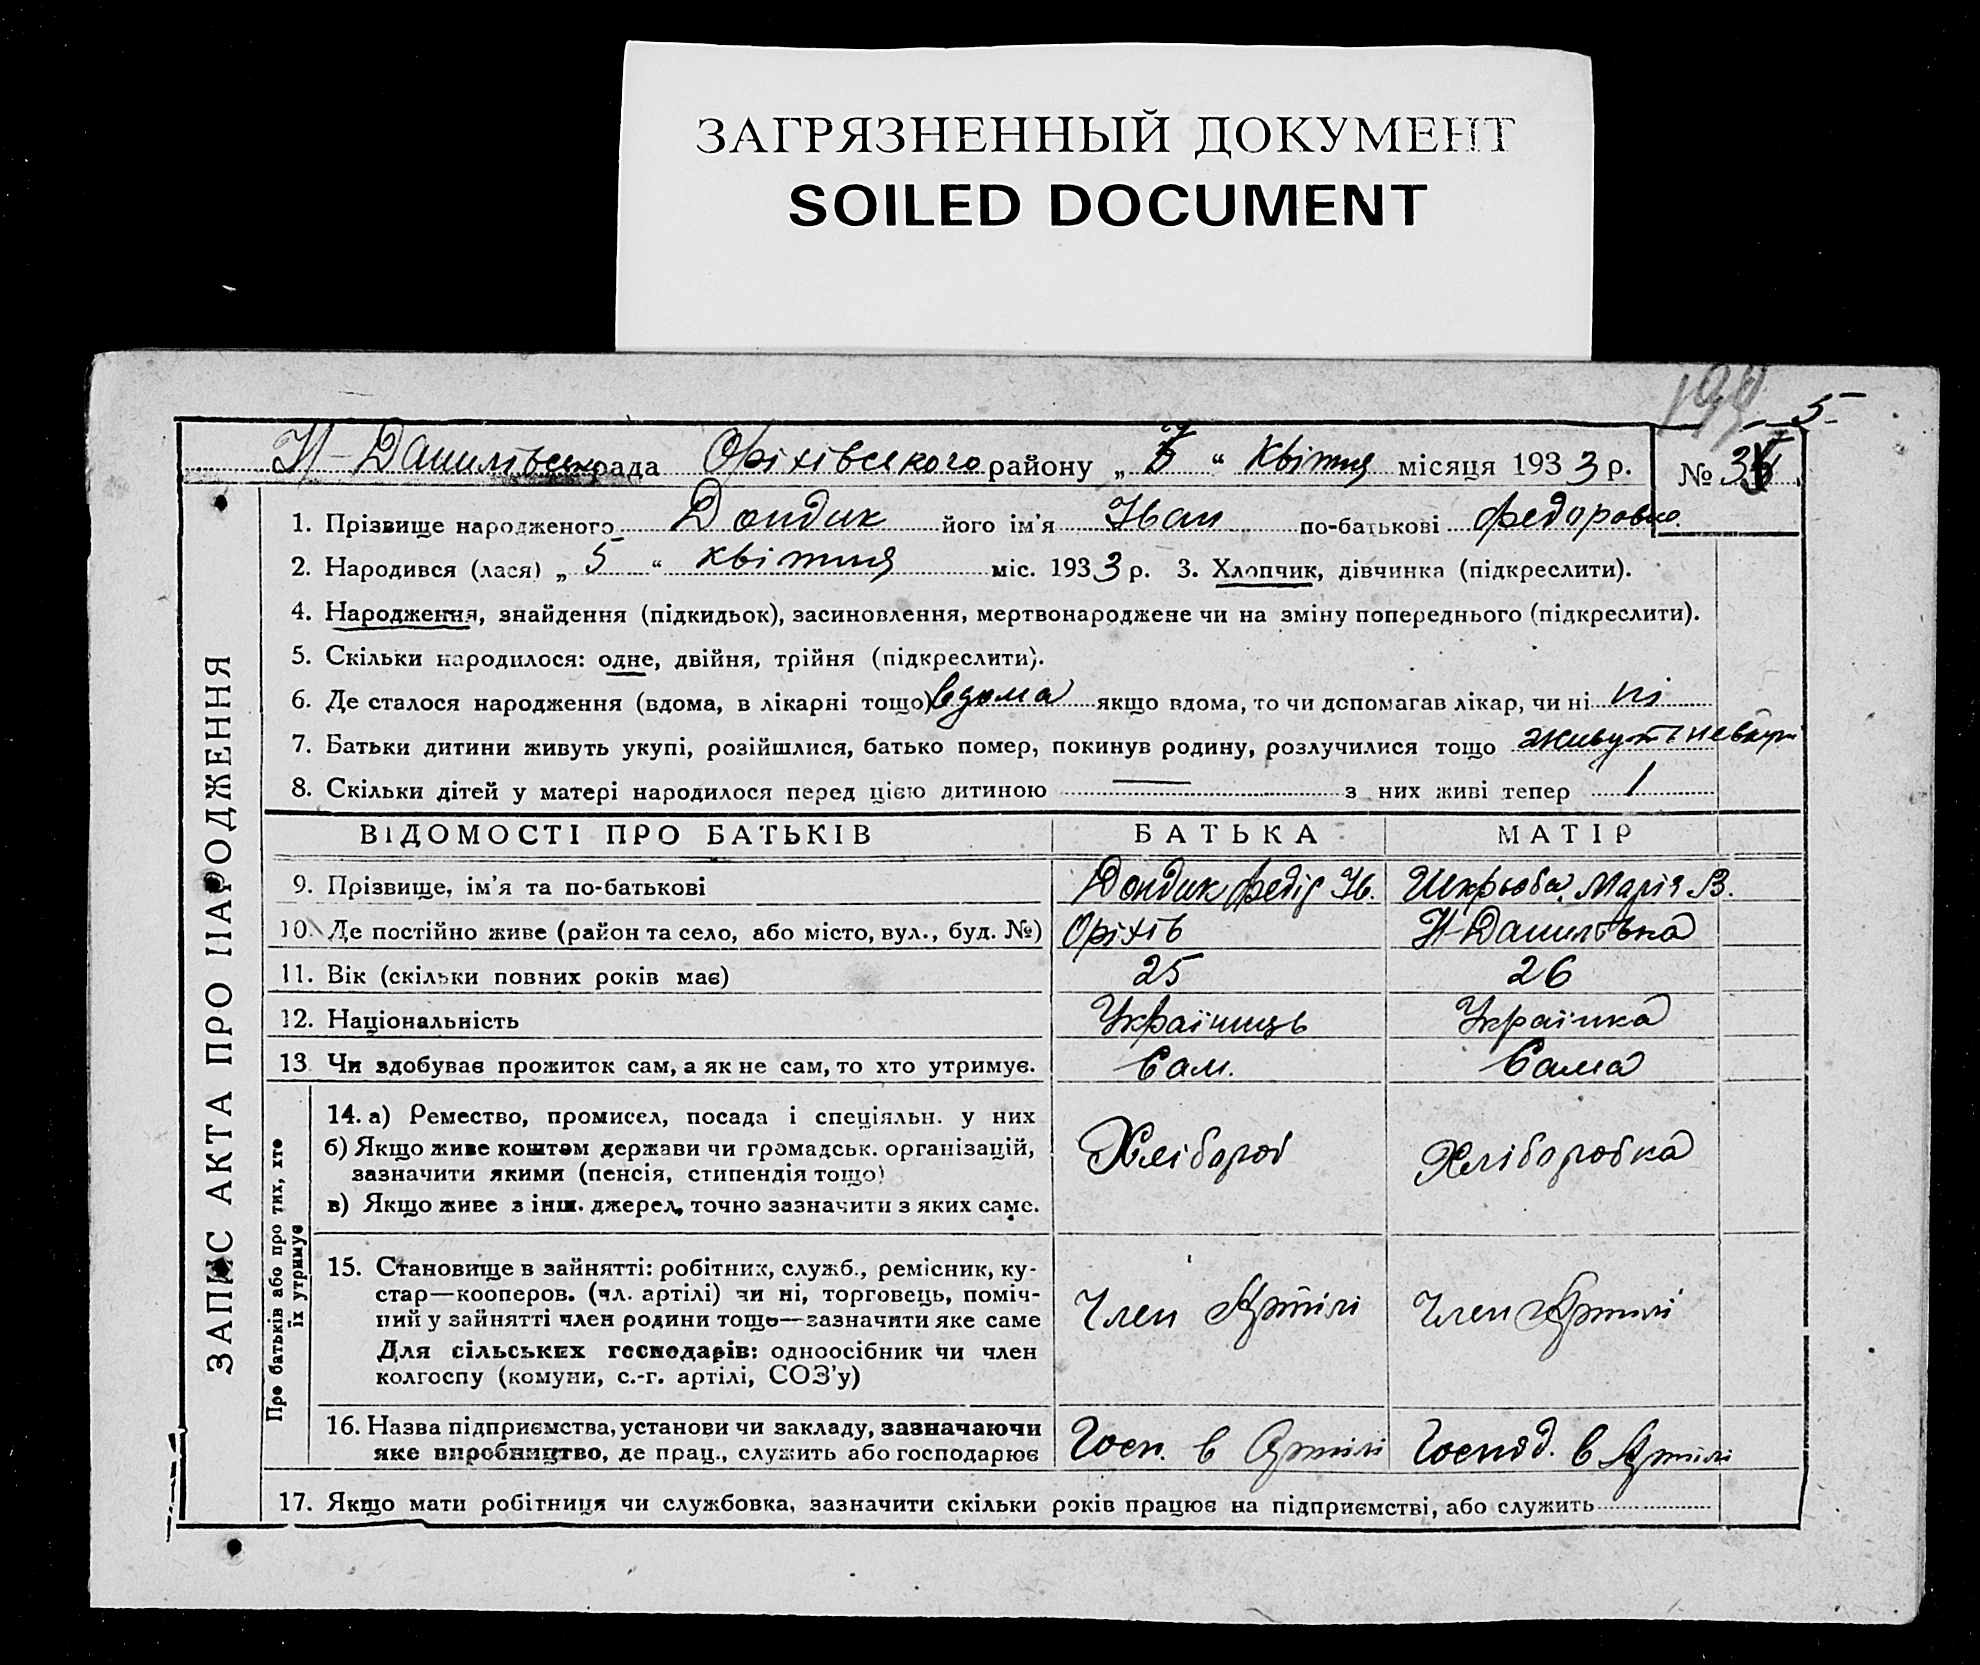 ЗАГРЯЗНЕННЫЙ ДОКУМЕНТ
SOILED DOCUMENT
5
Н-Данилівська рада Оріхівського району „ “ Квітня місяця 1933 р. № 
1. Прізвище народженого Дондик його ім'я Іван по-батькові Федоровио.
2. Народився (лася) „ 5 “ квітня міс. 1933 р. 3. Хлопчик, дівчинка (підкреслити).
4. Народження, знайдення (підкидьок), засиновлення, мертвонароджене чи на зміну попереднього (підкреслити).
5. Скільки народилося: одне, двійня, трійня (підкреслити).
6. Де сталося народження (вдома, в лікарні тощо) вдома якщо вдома, то чи допомагав лікар, чи ні ні
7. Батьки дитини живуть укупі, розійшлися, батько помер, покинув родину, розлучилися тощо живуть невкупі
8. Скільки дітей у матері народилося перед цією дитиною — з них живі тепер 1
ВІДОМОСТІ ПРО БАТЬКІВ БАТЬКА МАТІР
9. Прізвище, ім'я та по-батькові Дондик Федір Ів. Шкрьоба Марія В.
10. Де постійно живе (район та село, або місто, вул., буд. №) Оріхів Н-Данилівка
11. Вік (скільки повних років має) 25 26
12. Національність Українець Українка
13. Чи здобуває прожиток сам, а як не сам, то хто утримує. Сам. Сама
14. а) Ремество, промисел, посада і спеціяльн. у них
б) Якщо живе коштом держави чи громадськ. організацій,
зазначити якими (пенсія, стипендія тощо)
в) Якщо живе з інш. джерел, точно зазначити з яких саме.
Хлібороб Хліборобка
15. Становище в зайнятті: робітник, служб., ремісник, ку-
стар—кооперов. (чл. артілі) чи ні, торговець, поміч-
ний у зайнятті член родини тощо—зазначити яке саме
Для сільських господарів: одноосібник чи член
колгоспу (комуни, с.-г. артілі, СОЗ'у)
Член Артілі Член Артилі
16. Назва підприємства, установи чи закладу, зазначаючи
яке виробництво, де прац., служить або господарює
Госп. в Артілі Господ. в Артілі
17. Якщо мати робітниця чи службовка, зазначити скільки років працює на підприємстві, або служить
ЗАПИС АКТА ПРО НАРОДЖЕННЯ
Про батьків або про тих, хто
їх утримує